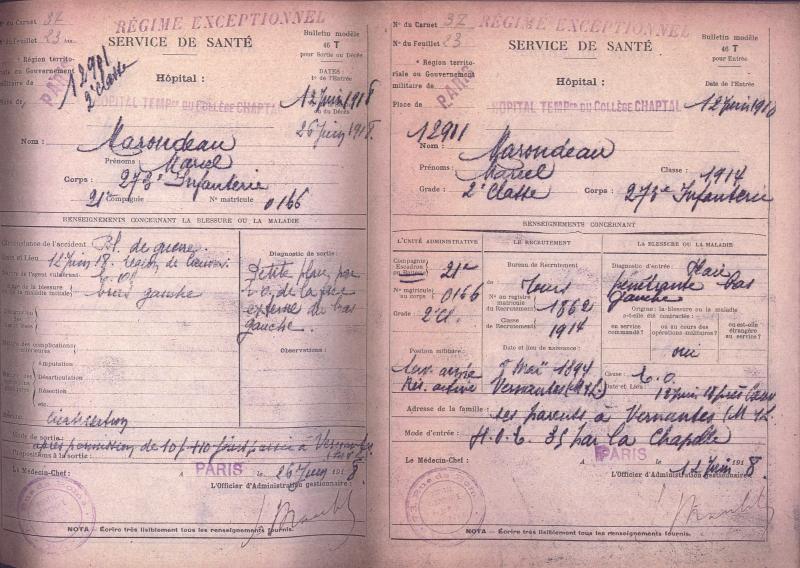 RÉGIME EXCEPTIONNEL
N° du Carnet 37
N° du Feuillet 23 bis
SERVICE DE SANTÉ
Bulletin modèle
46 T
pour Sortie ou Décès
12901
2e classe
* Région territo-
riale ou Gouvernement
militaire de
PARIS
Place de
Hôpital :
HOPITAL TEMPre DU COLLÈGE CHAPTAL
DATES:
1° de l'Entrée
12 Juin 1918
ou du Décès
26 Juin 1918.
Nom : Marondeau
Prénoms : Marcel
Corps : 273e Infanterie
21e Compagnie N° matricule 0166
RENSEIGNEMENTS CONCERNANT LA BLESSURE OU LA MALADIE
Circonstance de l'accident Bl. de guerre.
Date et Lieu 12 Juin 18. région de
Nature de l'agent vulnérant E. O.
bras gauche
Diagnostic de sortie :
Petite plaie par
E. O. de la face
externe du bras
gauche.
Observations :
Nature des complications
Amputation
Désarticulation
Résection
etc.
Cicatrisation
Mode de sortie :
après permission de 10 j + 10 jours passée à Vernantes
Propositions à la sortie :
Le Médecin-Chef :
A PARIS le 26 Juin 1918.
L'Officier d'Administration gestionnaire
NOTA — Écrire très lisiblement tous les renseignements fournis.
RÉGIME EXCEPTIONNEL
N° du Carnet 37
N° du Feuillet 23
SERVICE DE SANTÉ
Bulletin modèle
46 T
pour Entrée
* Région territo-
riale ou Gouvernement
militaire de
PARIS
Place de
Hôpital :
HOPITAL TEMPre DU COLLÈGE CHAPTAL
Date de l'Entrée
12 Juin 1918
12911
Nom : Marondeau
Prénoms : Marcel
Classe : 1914
Grade : 2e Classe
Corps : 273e Infanterie
RENSEIGNEMENTS CONCERNANT
L'UNITÉ ADMINISTRATIVE
Compagnie
Escadron
ou Batterie
21e
N° matricule
au corps
0166
Grade : 2e Cl.
Position militaire :
Arm. active
Rés. active
LE RECRUTEMENT
Bureau de Recrutement
de Tours
N° au registre
matricule
du Recrutement :
1862
Classe
de Recrutement :
1914
Date et lieu de naissance :
8 Mai 1894
Vernantes (M & L)
LA BLESSURE OU LA MALADIE
Diagnostic d'entrée : Plaie
pénétrante bras
gauche
Origine : la blessure ou la maladie
a-t-elle été contractée :
en service
commandé ?
ou au cours des
opérations militaires ?
ou est-elle
étrangère
au service ?
oui
Cause : E. O.
Date et Lieu : 12 Juin 18 près
Adresse de la famille : ses parents à Vernantes (M & L.
Mode d'entrée : H. O. E. 35 par la Chapelle
Le Médecin-Chef :
A PARIS le 12 Juin 1918.
L'Officier d'Administration gestionnaire
NOTA — Écrire très lisiblement tous les renseignements fournis.